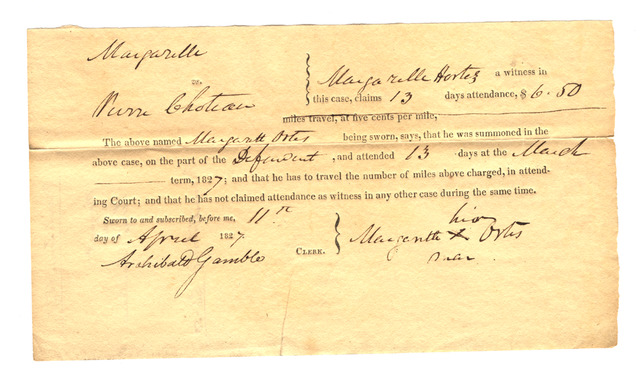 Margarette
vs.
Pierre Choteau
Margarette Hortez a witness in
this case, claims 13 days attendance, $ 6.50
miles travel, at five cents per mile,
The above named Margarette Ortes being sworn, says, that he was summoned in the
above case, on the part of the Defendant, and attended 13 days at the March
term, 1827; and that he has to travel the number of miles above charged, in attend-
ing Court; and that he has not claimed attendance as witness in any other case during the same time.
Sworn to and subscribed, before me, 11th
day of April 1827.
Archibald Gamble CLERK.
his
Margarette X Ortes
mar